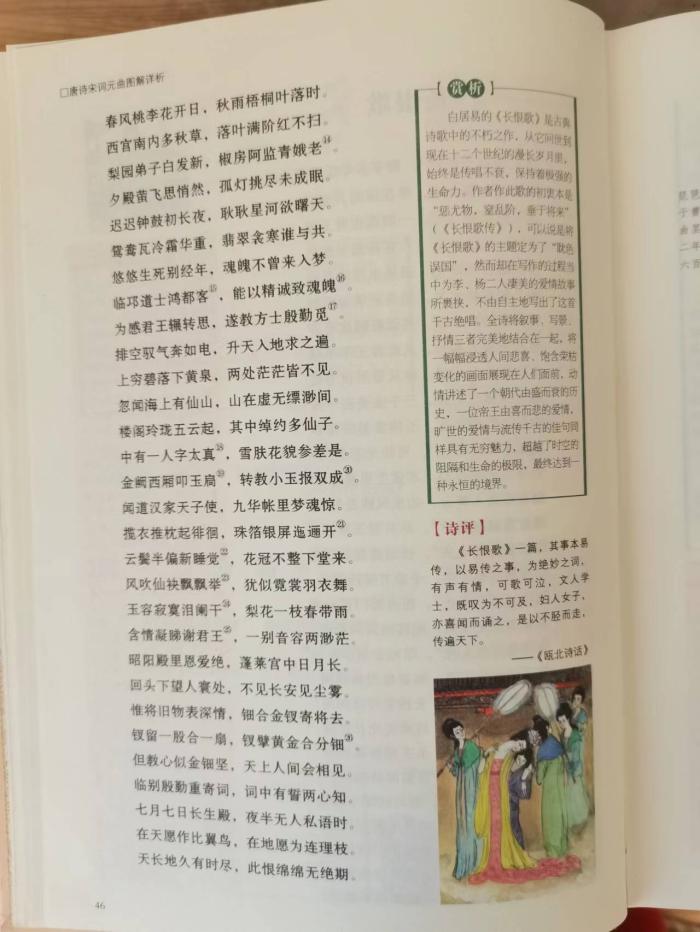 □唐诗宋词元曲图解详析
春风桃李花开日，秋雨梧桐叶落时。
西宫南内多秋草，落叶满阶红不扫。
梨园弟子白发新，椒房阿监青娥老⑭。
夕殿萤飞思悄然，孤灯挑尽未成眠。
迟迟钟鼓初长夜，耿耿星河欲曙天。
鸳鸯瓦冷霜华重，翡翠衾寒谁与共。
悠悠生死别经年，魂魄不曾来入梦。
临邛道士鸿都客⑮，能以精诚致魂魄⑯。
为感君王辗转思，遂教方士殷勤觅⑰。
排空驭气奔如电，升天入地求之遍。
上穷碧落下黄泉，两处茫茫皆不见。
忽闻海上有仙山，山在虚无缥渺间。
楼阁玲珑五云起，其中绰约多仙子。
中有一人字太真⑱，雪肤花貌参差是。
金阙西厢叩玉扃⑲，转教小玉报双成⑳。
闻道汉家天子使，九华帐里梦魂惊。
揽衣推枕起徘徊，珠箔银屏迤逦开㉑。
云鬓半偏新睡觉㉒，花冠不整下堂来。
风吹仙袂飘飘举㉓，犹似霓裳羽衣舞。
玉容寂寞泪阑干㉔，梨花一枝春带雨。
含情凝睇谢君王㉕，一别音容两渺茫。
昭阳殿里恩爱绝，蓬莱宫中日月长。
回头下望人寰处，不见长安见尘雾。
惟将旧物表深情，钿合金钗寄将去。
钗留一股合一扇，钗擘黄金合分钿㉖。
但教心似金钿坚，天上人间会相见。
临别殷勤重寄词，词中有誓两心知。
七月七日长生殿，夜半无人私语时。
在天愿作比翼鸟，在地愿为连理枝。
天长地久有时尽，此恨绵绵无绝期。
46
【赏析】
白居易的《长恨歌》是古典
诗歌中的不朽之作，从它问世到
现在十二个世纪的漫长岁月里，
始终是传唱不衰，保持着极强的
生命力。作者作此歌的初衷本是
“惩尤物，窒乱阶，垂于将来”
（《长恨歌传》），可以说是将
《长恨歌》的主题定为了“耽色
误国”，然而却在写作的过程当
中为李、杨二人凄美的爱情故事
所裹挟，不由自主地写出了这首
千古绝唱。全诗将叙事、写景、
抒情三者完美地结合在一起，将
一幅幅浸透人间悲喜、饱含荣枯
变化的画面展现在人们面前，动
情讲述了一个朝代由盛而衰的历
史，一位帝王由喜而悲的爱情，
旷世的爱情与流传千古的佳句同
样具有无穷魅力，超越了时空的
阻隔和生命的极限，最终达到一
种永恒的境界。
【诗评】
《长恨歌》一篇，其事本易
传，以易传之事，为绝妙之词，
有声有情，可歌可泣，文人学
士，既叹为不可及，妇人女子，
亦喜闻而诵之，是以不胫而走，
传遍天下。
——《瓯北诗话》
琵琶
于曹
曲罢
二年
六百